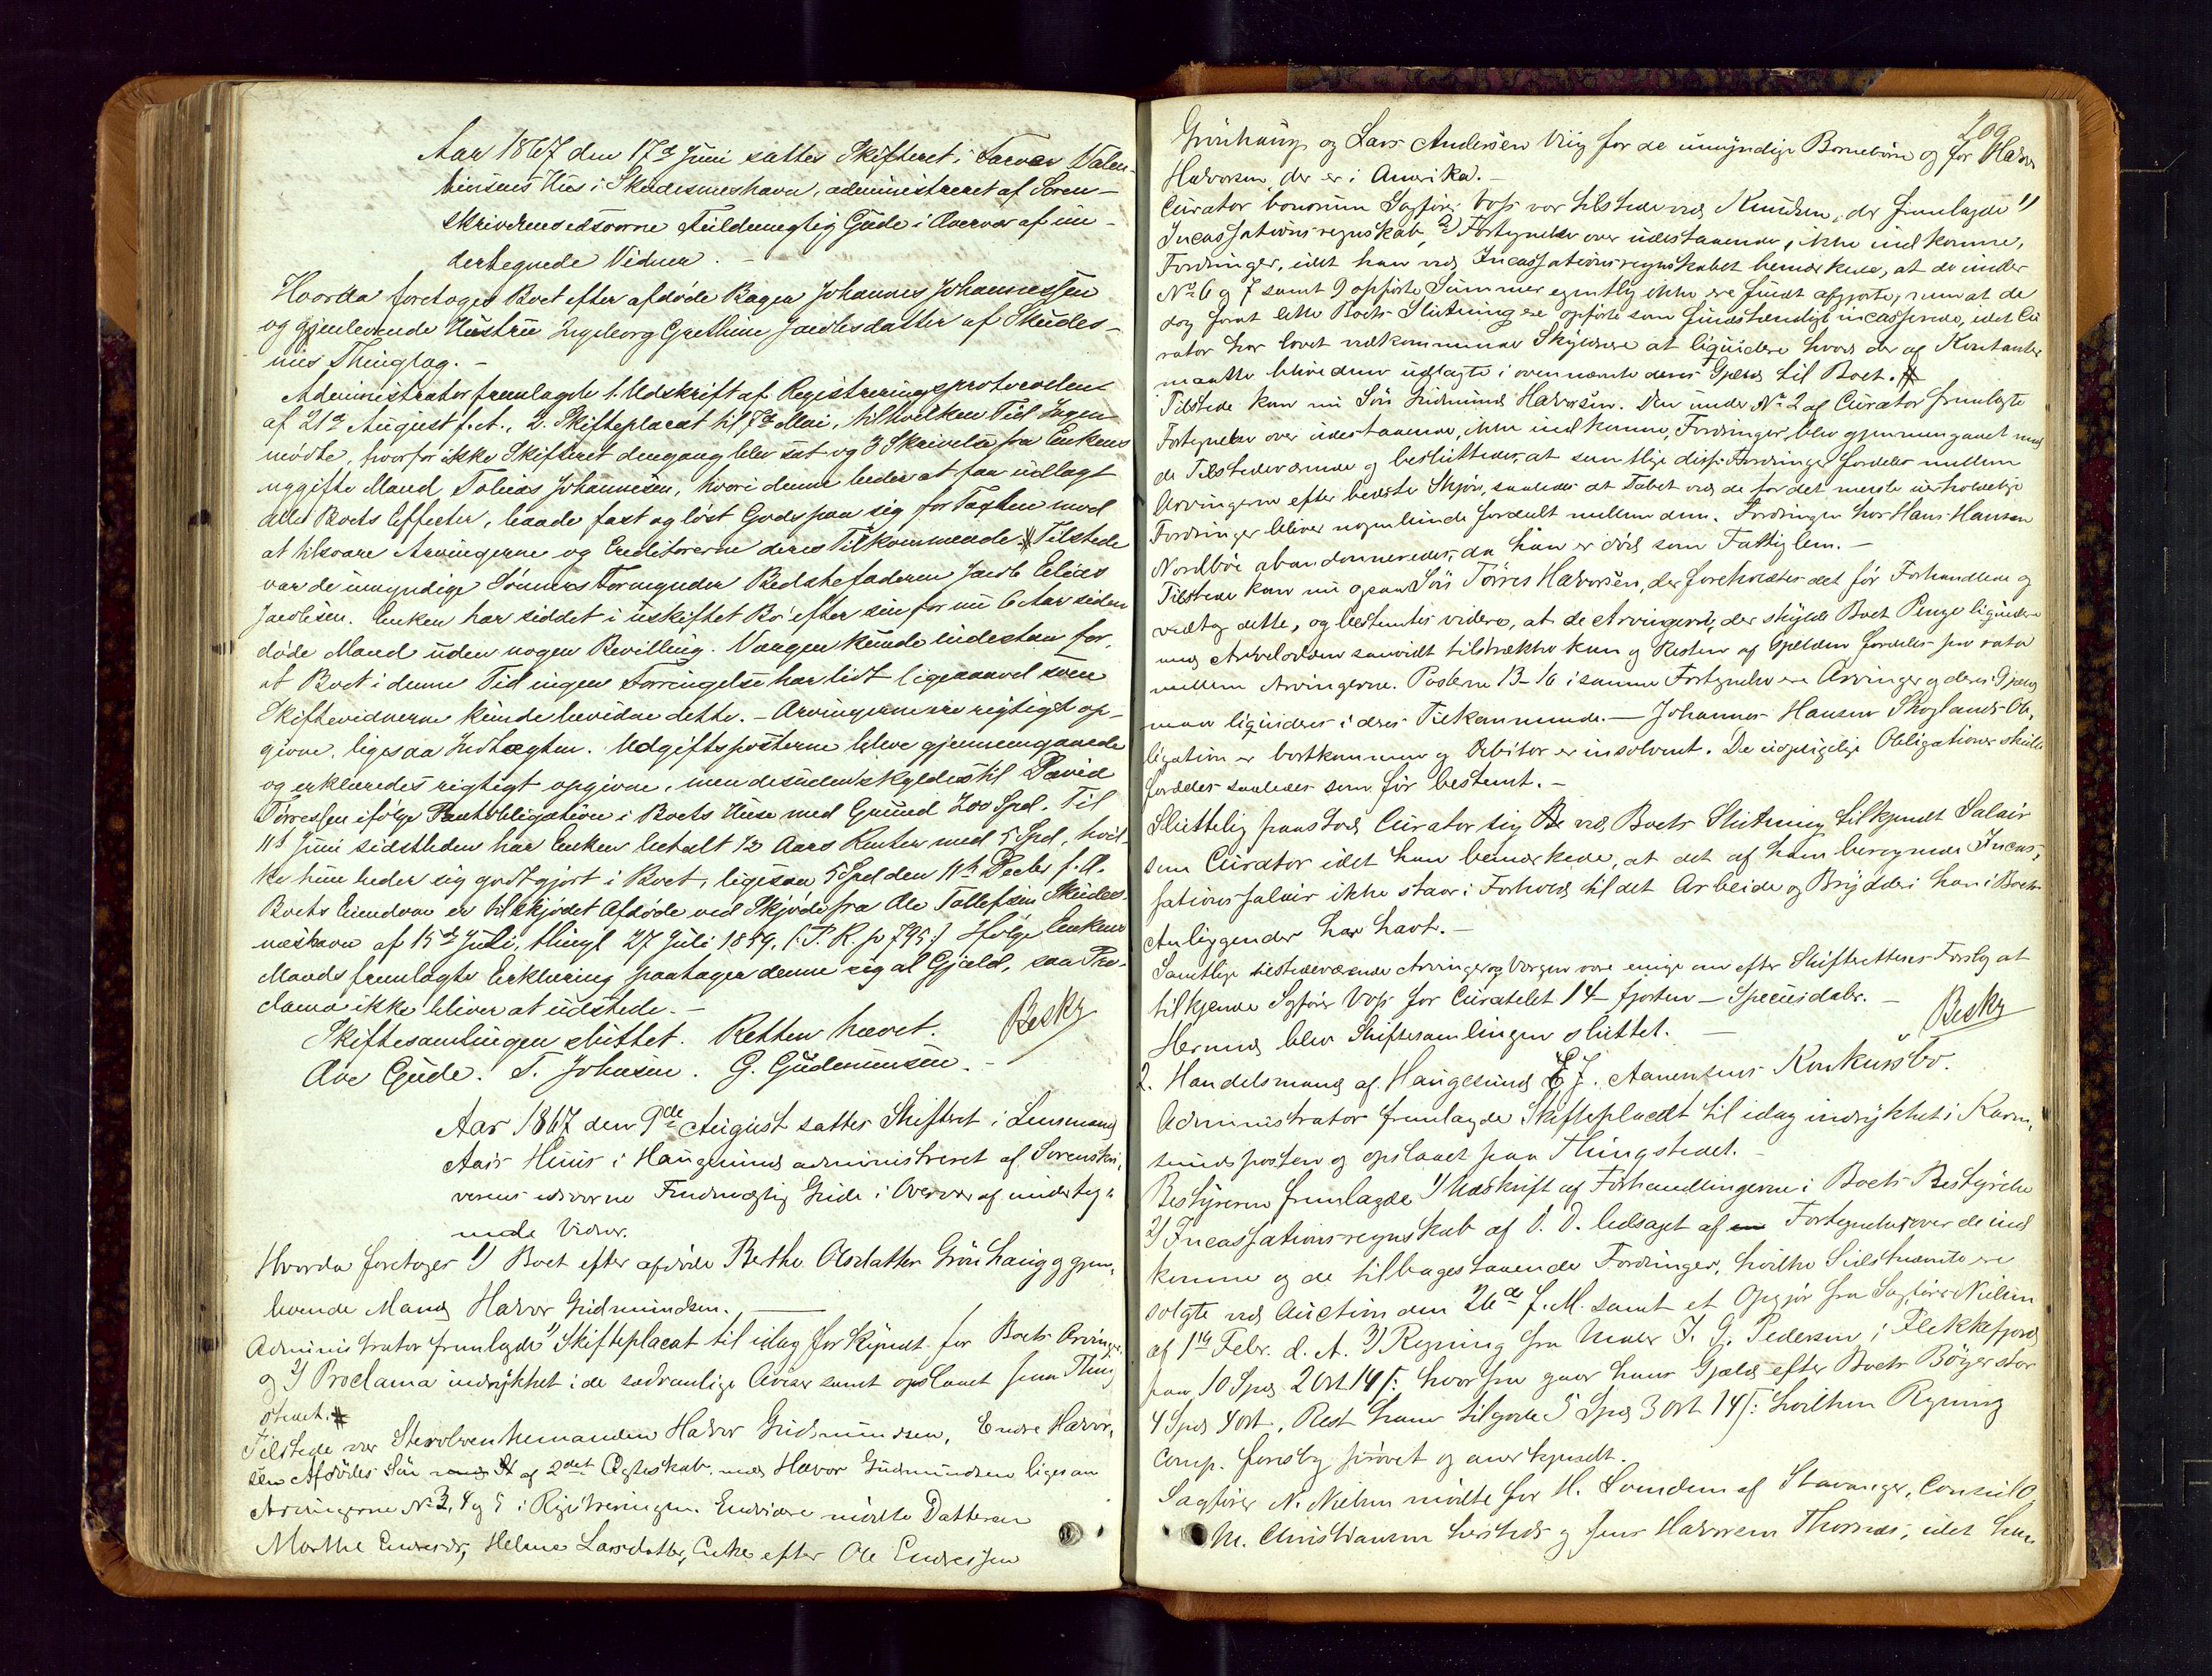 Aar 1867 den 17de Juni sattes Skifteret i Torger Valen-
tinsens Hus i Skudesneshavn, administreret af Soren-
skriverens edsvorne Fuldmægtig Gude i Overvær af un-
dertegnede Vidner. -
Hvorda foretoges Boet efter afdøde Bager Johannes Johannessen
og gjenlevende Hustru Ingeborg Grethine Jacobsdatter af Skudes-
nes Thinglag. -
Administrator fremlagde 1. Udskrift af Registreringsprotocollen
af 21de August f. A., 2. Skifteplacat til 7de Mai, til hvilken Tid Ingen
mødte, hvorfor ikke Skifteret dengang blev sat og 3 Skrivelse fra Enkens
nygifte Mand Tobias Johannesen, hvori denne beder at faa udlagt
alle Boets Effecter, baade fast og løst Gods paa sig for Taxten mod
at tilsvare Arvingerne og Creditorerne deres Tilkommende. # Tilstede
var de umyndige Sønners Formynder Bedstefaderen Jacob Elias
Jacobsen. Enken har siddet i uskiftet Bo efter sin for nu 6 Aar siden
døde Mand uden nogen Bevilling. Værgen kunde indestaa for,
at Boet i denne Tid ingen Forringelse har lidt ligesaavel som
Skiftevidnerne kunde bevidne dette. - Arvingerne ere rigtigt op-
givne, ligesaa Indtægten. Udgiftsposterne bleve gjennemgaaede
og erklæredes rigtigt opgivne, men desuden skyldes til David
Tørressen ifølge Pantobligation i Boets Huse med Grund 200 Spd. Til
11te Juni sidstleden har Enken betalt 1/2 Aars Renter med 5 Spd, hvil-
ke hun beder sig godtgjort i Boet, ligesaa 5 Spd den 11te Decbr f. A.
Boets Eiendom er tilskjødet Afdøde ved Skjøde fra Ole Tollefsen Skudes-
neshavn af 15de Juli, thingl. 27 Juli 1859. (: P. R. p 795 :) Ifølge Enkens
Mands fremlagte Erklæring paatager denne sig al Gjæld, saa Pro-
clama ikke bliver at udstede. -
Skiftesamlingen sluttet. Retten hævet.
Beskr
Ove Gude. T. Johnsen. G. Gudmunsen. -
Aar 1867 den 9de August sattes Skifteret i Lensmand
Huus i Haugesund administreret af Sorenskri,
verens edsvorne Fuldmægtig Gude i Overvær af underteg,,
nede Vidner.
Hvorda foretoges 1) Boet efter afdøde Berthe Olsdatter Grønhaug og gjen,
levende Mand Halvor Gudmundsen. —
Administrator fremlagde 1) Skifteplacat til idag forkyndt for Boets Arvinger
og 2) Proclama indrykket i de sædvanlige Aviser samt opslaaet paa Thing
stedet. #
Tilstede var Sterboenkemanden Halvor Gudmundsen, Endre Halvor,
sen Afdødes Søn af 2det Ægteskab med Halvor Gudmundsen ligesaa
Arvingerne No 3, 4 og 5 i Registreringen. Endvidere mødte Datteren
Marthe Endresdr, Helene Larsdatter, Enke efter Ole Endressen
209
Grønhaug og Lars Andersen Viig for de umyndige Børnebørn og for Halvor
Halvorsen, der er i Amerika. -
Curator bonorum Sagfører Voss var tilstede ved Knudsen, der fremlagde 1)
Incassationsregnskab, 2) Fortegnelse over udestaaende, ikke indkomne,
Fordringer, idet han ved Incassationsregnskabet bemærkede, at de under
No 6 og 7 samt 9 opførte Summer egentlig ikke ere fuldt afgjorte, men at de
dog forat lette Boets Slutning ere opførte som fuldstændigt incasserede, idet Cu
rator har lovet vedkommende Skyldnere at liquidere hvad der af Kontanter
maatte blive dem udlagte i ovennævnte deres Gjæld til Boet. #
Tilstede kom nu Søn Gudmund Halvorsen. Den under No 2 af Curator fremlagte
Fortegnelse over udestaaende, ikke indkomne, Fordringer, blev gjennemgaaet med
de Tilstedeværende og besluttedes, at samtlige disse Fordringer fordeles mellem
Arvingerne efter bedste Skjøn, saaledes at Tabet ved de for det meste uerholdelige
Fordringer bliver nogenlunde fordeelt mellem dem. Fordringen hos Hans Hansen
Nordbøe abandonneredes, da han er død som Fattiglem. -
Tilstede kom nu ogsaa Søn Tørris Halvorsen, der foreholdtes det før Forhandlede og
vedtog dette, og bestemtes videre, at de Arvinger, der skylde Boet Penge liquidere
med Arvelodden saavidt tilstrække kan og Resten af Gjælden fordeles pro rata
mellem Arvingerne. Posterne 13-16 i samme Fortegnelse ere Arvinger og deres Gjæld
maa liquideres i deres Tilkommende. — Johannes Hansen Skoglands Ob,
ligation er bortkommen og Debitor er insolvent. De øvrige Obligationer skulle
fordeles saaledes som før bestemt. -
Sluttelig paastod Curator sig ved Boets Slutning tilkjendt Salair
som Curator idet han bemærkede, at det af ham beregnede Incas,
sationssalair ikke staar i Forhold til det Arbeide og Bryderi han i Boets
Anliggender har havt. -
Samtlige tilstedeværende Arvinger og Værger vare enige om efter Skifterettens Forslag at
tilkjende Sagfører Voss for Curatelet 14 - fjorten - Speciesdaler. -
Hermed blev Skiftesamlingen sluttet. —
Beskr
2. Handelsmand af Haugesund E J. Aanensens Konkursbo.
Administrator fremlagde Skifteplacat til idag indrykket i Karm,
sundsposten og opslaaet paa Thingstedet. -
Bestyreren fremlagde 1) Udskrift af Forhandlingerne i Boets Bestyrelse
2) Incassationsregnskab af D. D. ledsaget af Fortegnelse over de ind
komne og de tilbagestaaende Fordringer, hvilke Sidstnævnte ere
solgte ved Auction den 26de f. M. samt et Opgjør fra Sagfører Nielsen
af 1ste Febr. d. A. 3) Regning fra J. G. Pedersen i Flekkefjord
paa 10 Spd 2 Ort 14 s: hvorfra gaar hans Gjæld efter Boets Bøger stor
4 Spd 4 ort, Rest hans tilgode 5 Spd 3 Ort 14 s: hvilken Regning
comp. forsbg prøvet og anerkjendt.
Sagfører N. Nielsen mødte for H. Svendsen af Stavanger, Consul O
M. Christiansen og Jens Halvorsen Thornæs, idet han